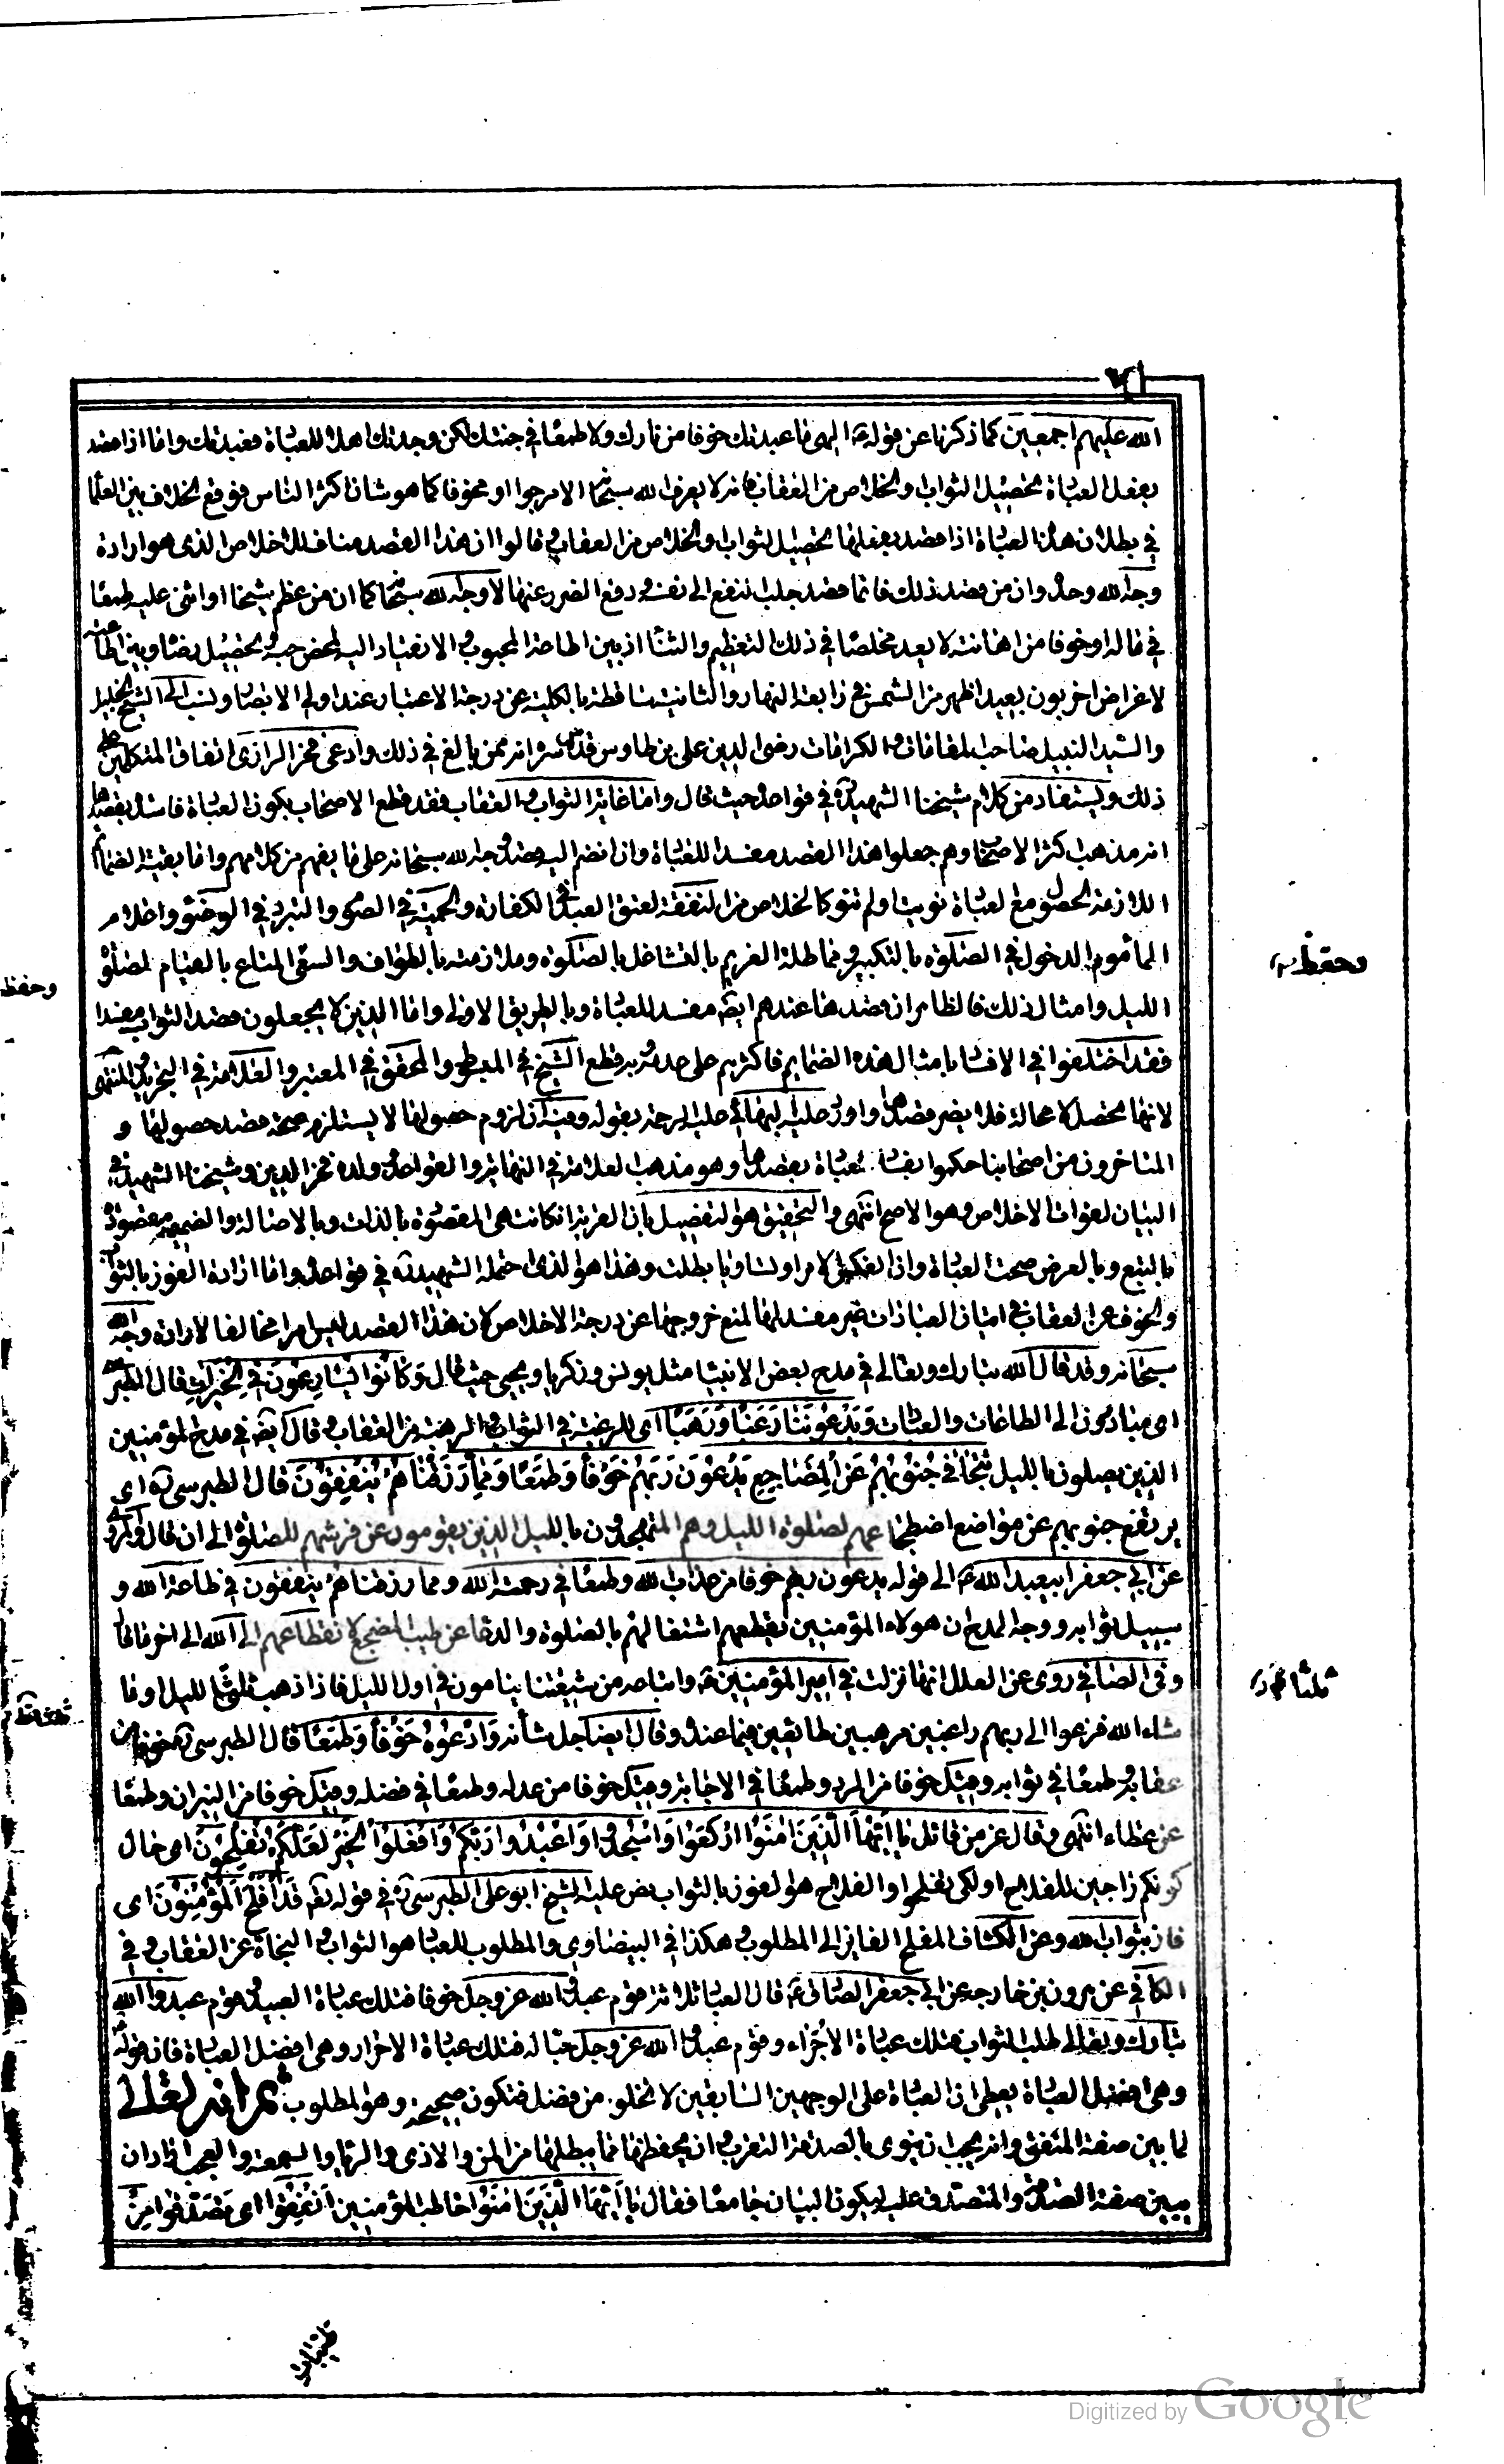 الله عليهم اجمعين كما ذكرنا عن قوله ع الهى ما عبدتك خوفا من نارك ولا طمعا في جنتك لكن وجدتك اهلا للعبادة فعبدتك واما اذا قصد
بفعل العبادة تحصيل الثواب والخلاص من العقاب فانه لا يعرف الله سبحانه الا مرجوا او مخوفا كما هو شان اكثر الناس فوقع الخلاف بين العلماء
في بطلان هذه العبادة اذا قصد بفعلها تحصيل الثواب والخلاص من العقاب قالوا ان هذا القصد مناف للاخلاص الذى هو ارادة
وجه الله وحده وان من قصد ذلك فانما قصد جلب النفع الى نفسه ودفع الضرر عنها لا وجه الله سبحانه كما ان من عظم شخصا او اثنى عليه طمعا
في ماله او خوفا من اهانته لا يعد مخلصا في ذلك التعظيم والثناء اذ بين اطاعة المحبوب والانقياد اليه لمحض حبه وتحصيل رضاه وبين اطاعته
لاغراض اخر بون بعيد اظهر من الشمس في رابعة النهار والثانية ساقطة بالكلية عن درجة الاعتبار عند اولى الابصار ونسب الى الشيخ الجليل
والسيد النبيل صاحب المقامات والكرامات رضى الدين على بن طاوس قدس سره انه ممن بالغ في ذلك وادعى فخر الرازى اتفاق المتكلمين على
ذلك ويستفاد من كلام شيخنا الشهيد ره في قواعده حيث قال واما غاية الثواب والعقاب فقد قطع الاصحاب بكون العبادة فاسدة بقصدها
انه مذهب اكثر الاصحاب وهم جعلوا هذا القصد مفسدا للعبادة وان انضم اليه قصد وجه الله سبحانه على ما يفهم من كلامهم واما بقية الضمائم
اللازمة الحصول مع العبادة نويت او لم تنو كالخلاص من النفقة لعتق العبد في الكفارة والحمية في الصوم والتبرد في الوضوء واعلام
المأموم الدخول في الصلوة بالتكبير ومماطلة الغريم بالتشاغل بالصلوة وملازمته بالطواف والسعى المتاع بالقيام لصلوة
الليل وامثال ذلك فالظاهر ان قصدها عندهم ايضا مفسد للعبادة وبالطريق الاولى واما الذين لا يجعلون قصد الثواب مفسدا
فقد اختلفوا في الافساد بامثال هذه الضمايم فاكثرهم على عدمه وبه قطع الشيخ في المبسوط والمحقق في المعتبر والعلامة في التحرير والمنتهى
لانها تحصل لا محالة فلا يضر قصدها واورد عليه البهائي عليه الرحمة بقوله وفيه ان لزوم حصولها لا يستلزم صحة قصد حصولها و
المتاخرون من اصحابنا حكموا بفساد العبادة بقصدها وهو مذهب العلامة في النهاية والقواعد وولده فخر الدين وشيخنا الشهيد في
البيان لفوات الاخلاص وهو الاصح انتهى والتحقيق هو التفصيل بان القربة ان كانت هى المقصودة بالذات وبالاصالة والضميمة مقصودة
بالتبع وبالعرض صحت العبادة وان انعكس الامر او تساويا بطلت وهذا هو الذى احتمله الشهيد ره في قواعده واما ارادة الفوز بالثواب
والخوف عن العقاب في اتيان العبادات غير مفسد لها لمنع خروجها عن درجة الاخلاص لان هذا القصد ليس امرا مخالفا لارادة وجه الله
سبحانه وقد قال الله تبارك وتعالى في مدح بعض الانبياء مثل يونس وزكريا ويحيى حيث قال وَكَانُوا يُسَارِعُونَ فِي الْخَيْرَاتِ قال الطبرسى
اى يتبادرون الى الطاعات والعبادات وَيَدْعُونَنَا رَغَبًا وَرَهَبًا اى للرغبة في الثواب والرهبة من العقاب وقال ايضا في مدح المؤمنين
الذين يصلون بالليل تَتَجَافى جُنُوبُهُمْ عَنِ الْمَضَاجِعِ يَدْعُونَ رَبَّهُمْ خَوْفًا وَطَمَعًا وَمِمَّا رَزَقْنَاهُمْ يُنْفِقُونَ قال الطبرسى ره اى
يرتفع جنوبهم عن مواضع اضطجاعهم لصلوة الليل وهم المتهجدون بالليل الذين يقومون عن فرشهم للصلوة الى ان قال وروى
عن ابي جعفر ابيعبد الله ع الى قوله يدعون ربهم خوفا من عذاب الله وطمعا في رحمة الله ومما رزقناهم ينفقون في طاعة الله و
سبيل ثوابه ووجه المدح ان هولاء المؤمنين يقطعهم اشتغالهم بالصلوة والدعاء عن طيب المضجع لانقطاعهم الى الله الى اخر ما قال
وفى الصافي روى عن العلل انها نزلت في امير المؤمنين ع واتباعه من شيعتنا ينامون في اول الليل فاذا ذهب ثلثا الليل او ما
شاء الله فزعوا الى ربهم راغبين مرهبين طامعين فيما عنده وقال ايضا جل شأنه وَادْعُوهُ خَوْفًا وَطَمَعًا قال الطبرسى ره خوفا من
عقابه وطمعا في ثوابه وقيل خوفا من الرد وطمعا في الاجابة وقيل خوفا من عدله وطمعا في فضله وقيل خوفا من النيران وطمعا
عن عطاء انتهى وقال عز من قائل يَا اَيُّهَا الَّذِينَ امَنُوا ارْكَعُوا وَاسْجُدُوا وَاعْبُدُوا رَبَّكُمْ وَافْعَلُوا الْخَيْرَ لَعَلَّكُمْ تُفْلِحُونَ اى حال
كونكم راجين للفلاح او لكى تفلحوا والفلاح هو الفوز بالثواب نص عليه الشيخ ابو على الطبرسى ره في قوله تعالى قَدْ اَفْلَحَ الْمُؤْمِنُونَ اى
فاز بثواب الله وعن الكشاف المفلح الفايز الى المطلوب وهكذا في البيضاوى والمطلوب للعباد هو الثواب والنجاة عن العقاب وفي
الكافي عن هرون بن خارجه عن ابي جعفر الصادق ع قال العباد ثلاثة قوم عبدوا الله عز وجل خوفا فتلك عبادة العبيد وقوم عبدوا الله
تبارك وتعالى طلب الثواب فتلك عبادة الاجراء وقوم عبدوا الله عز وجل حبا له فتلك عبادة الاحرار وهى افضل العبادة فان قوله
وهى افضل العبادة يعطى ان العبادة على الوجهين السابقين لا تخلو من فضل فتكون صحيحة وهو المطلوب ثم انه تعالى
لما بين صفة المنفق وانه يجب ان ينوى بالصدقة التقرب وان يحفظها مما يبطلها من المن والاذى والرياء والسمعة والعجب اراد ان
يبين صفة الصدقة والمتصدق عليه ليكون البيان جامعا فقال يَا اَيُّهَا الَّذِينَ امَنُوا خاطب المؤمنين اَنْفِقُوا اى تصدقوا مِنْ
وحفظ